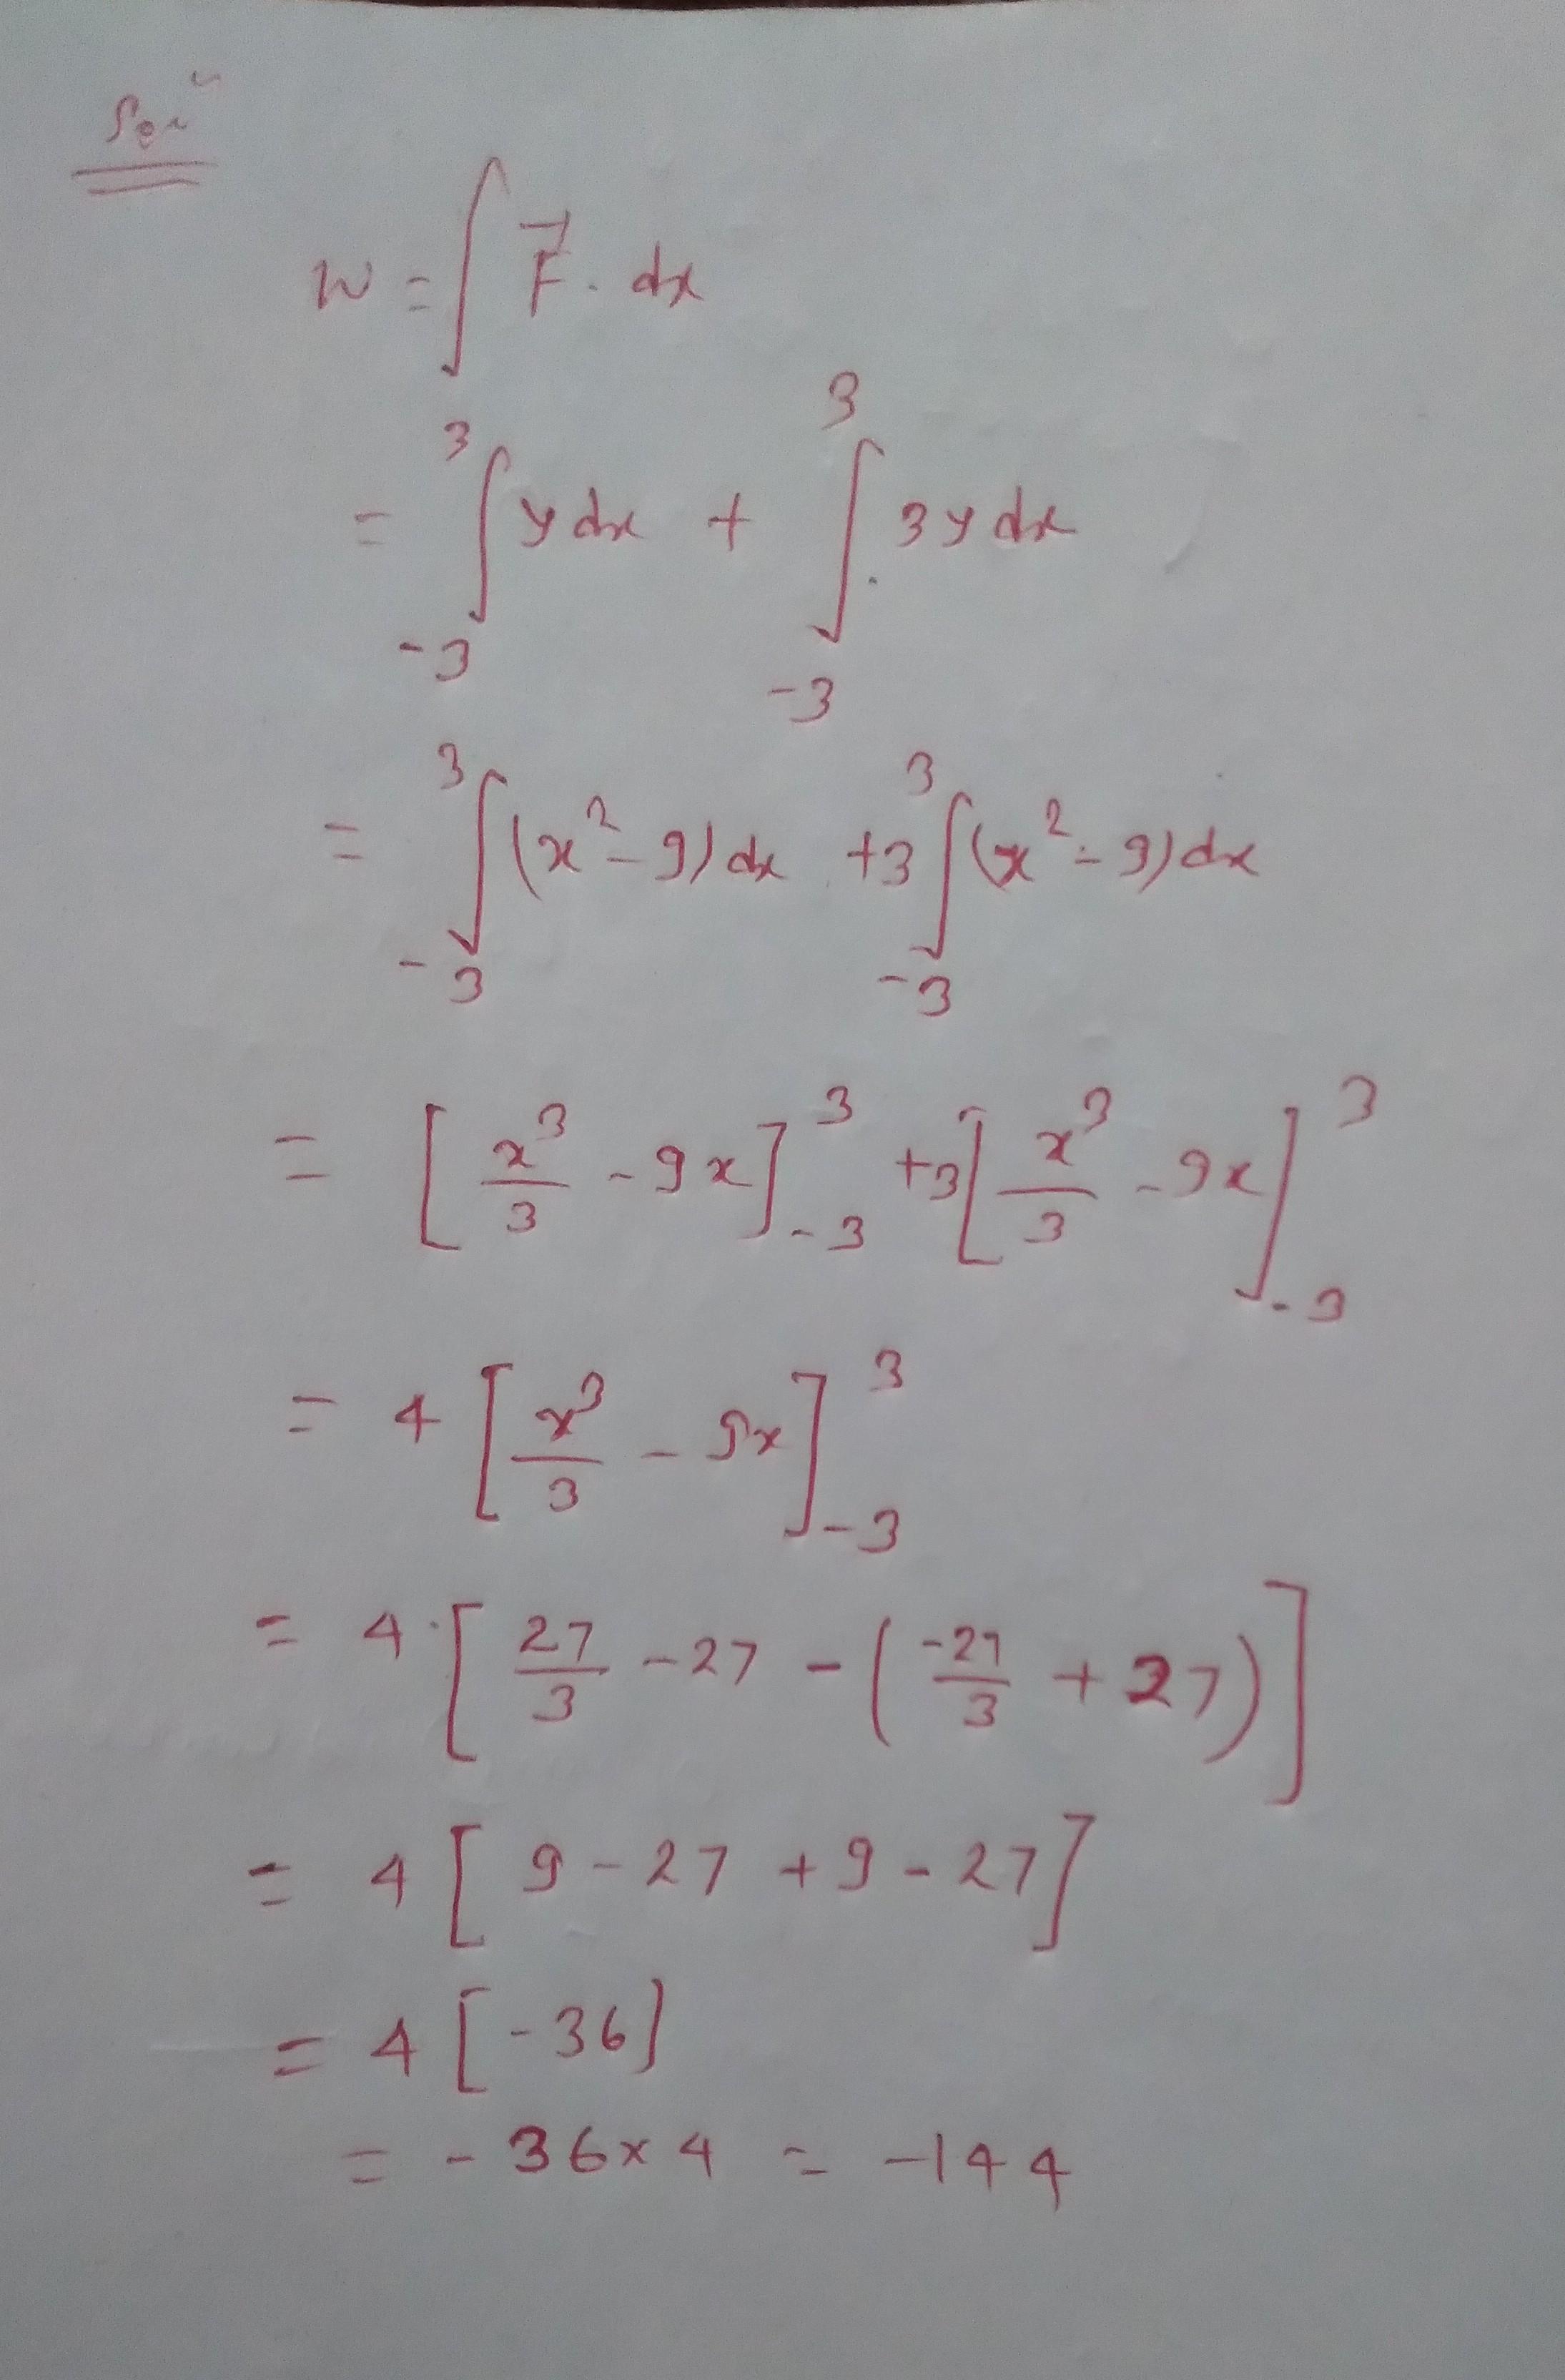 Solⁿ
W = ∫ F⃗ . dx
= ∫₋₃³ y dx + ∫₋₃³ 3y dx
= ∫₋₃³ (x² - 9) dx + 3 ∫₋₃³ (x² - 9) dx
= [x³/3 - 9x]₋₃³ + 3[x³/3 - 9x]₋₃³
= 4 [x³/3 - 9x]₋₃³
= 4 [27/3 - 27 - (-27/3 + 27)]
= 4 [9 - 27 + 9 - 27]
= 4 [-36]
= - 36 x 4 = -144